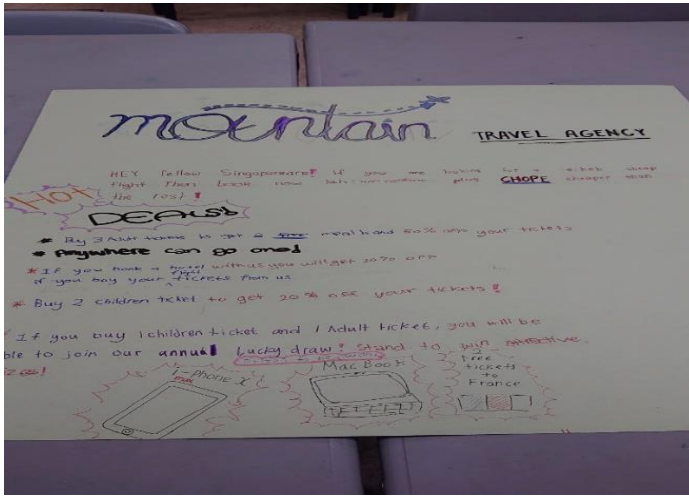 mountain TRAVEL AGENCY
HEY fellow Singaporeans! If you are
flight then look now CHOPE cheaper than
the rest!
HOT
DEALS!
* By 3 Adult tickets to get a free meal and 50% off your tickets
* Anywhere can go one!
* If you book a hotel with us you will get 20% off
if you buy your flight tickets from us
* Buy 2 children ticket to get 20% off your tickets!
If you buy 1 children ticket and 1 Adult ticket, you will be
ble to join our annual Lucky draw! Stand to win attractive
zes!
i-phone X
MacBook
2
Free
tickets
to
France